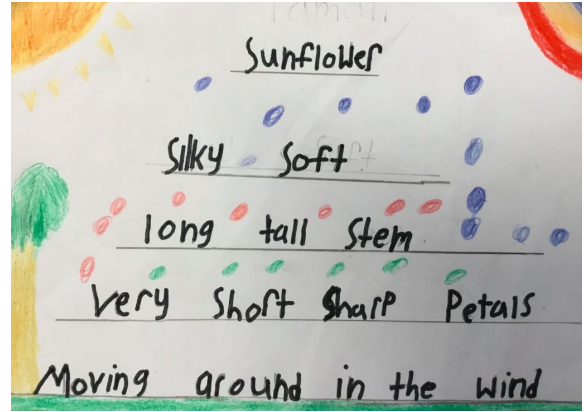 Sunflower
Silky Soft
long tall Stem
Very Short Sharp Petals
Moving around in the wind